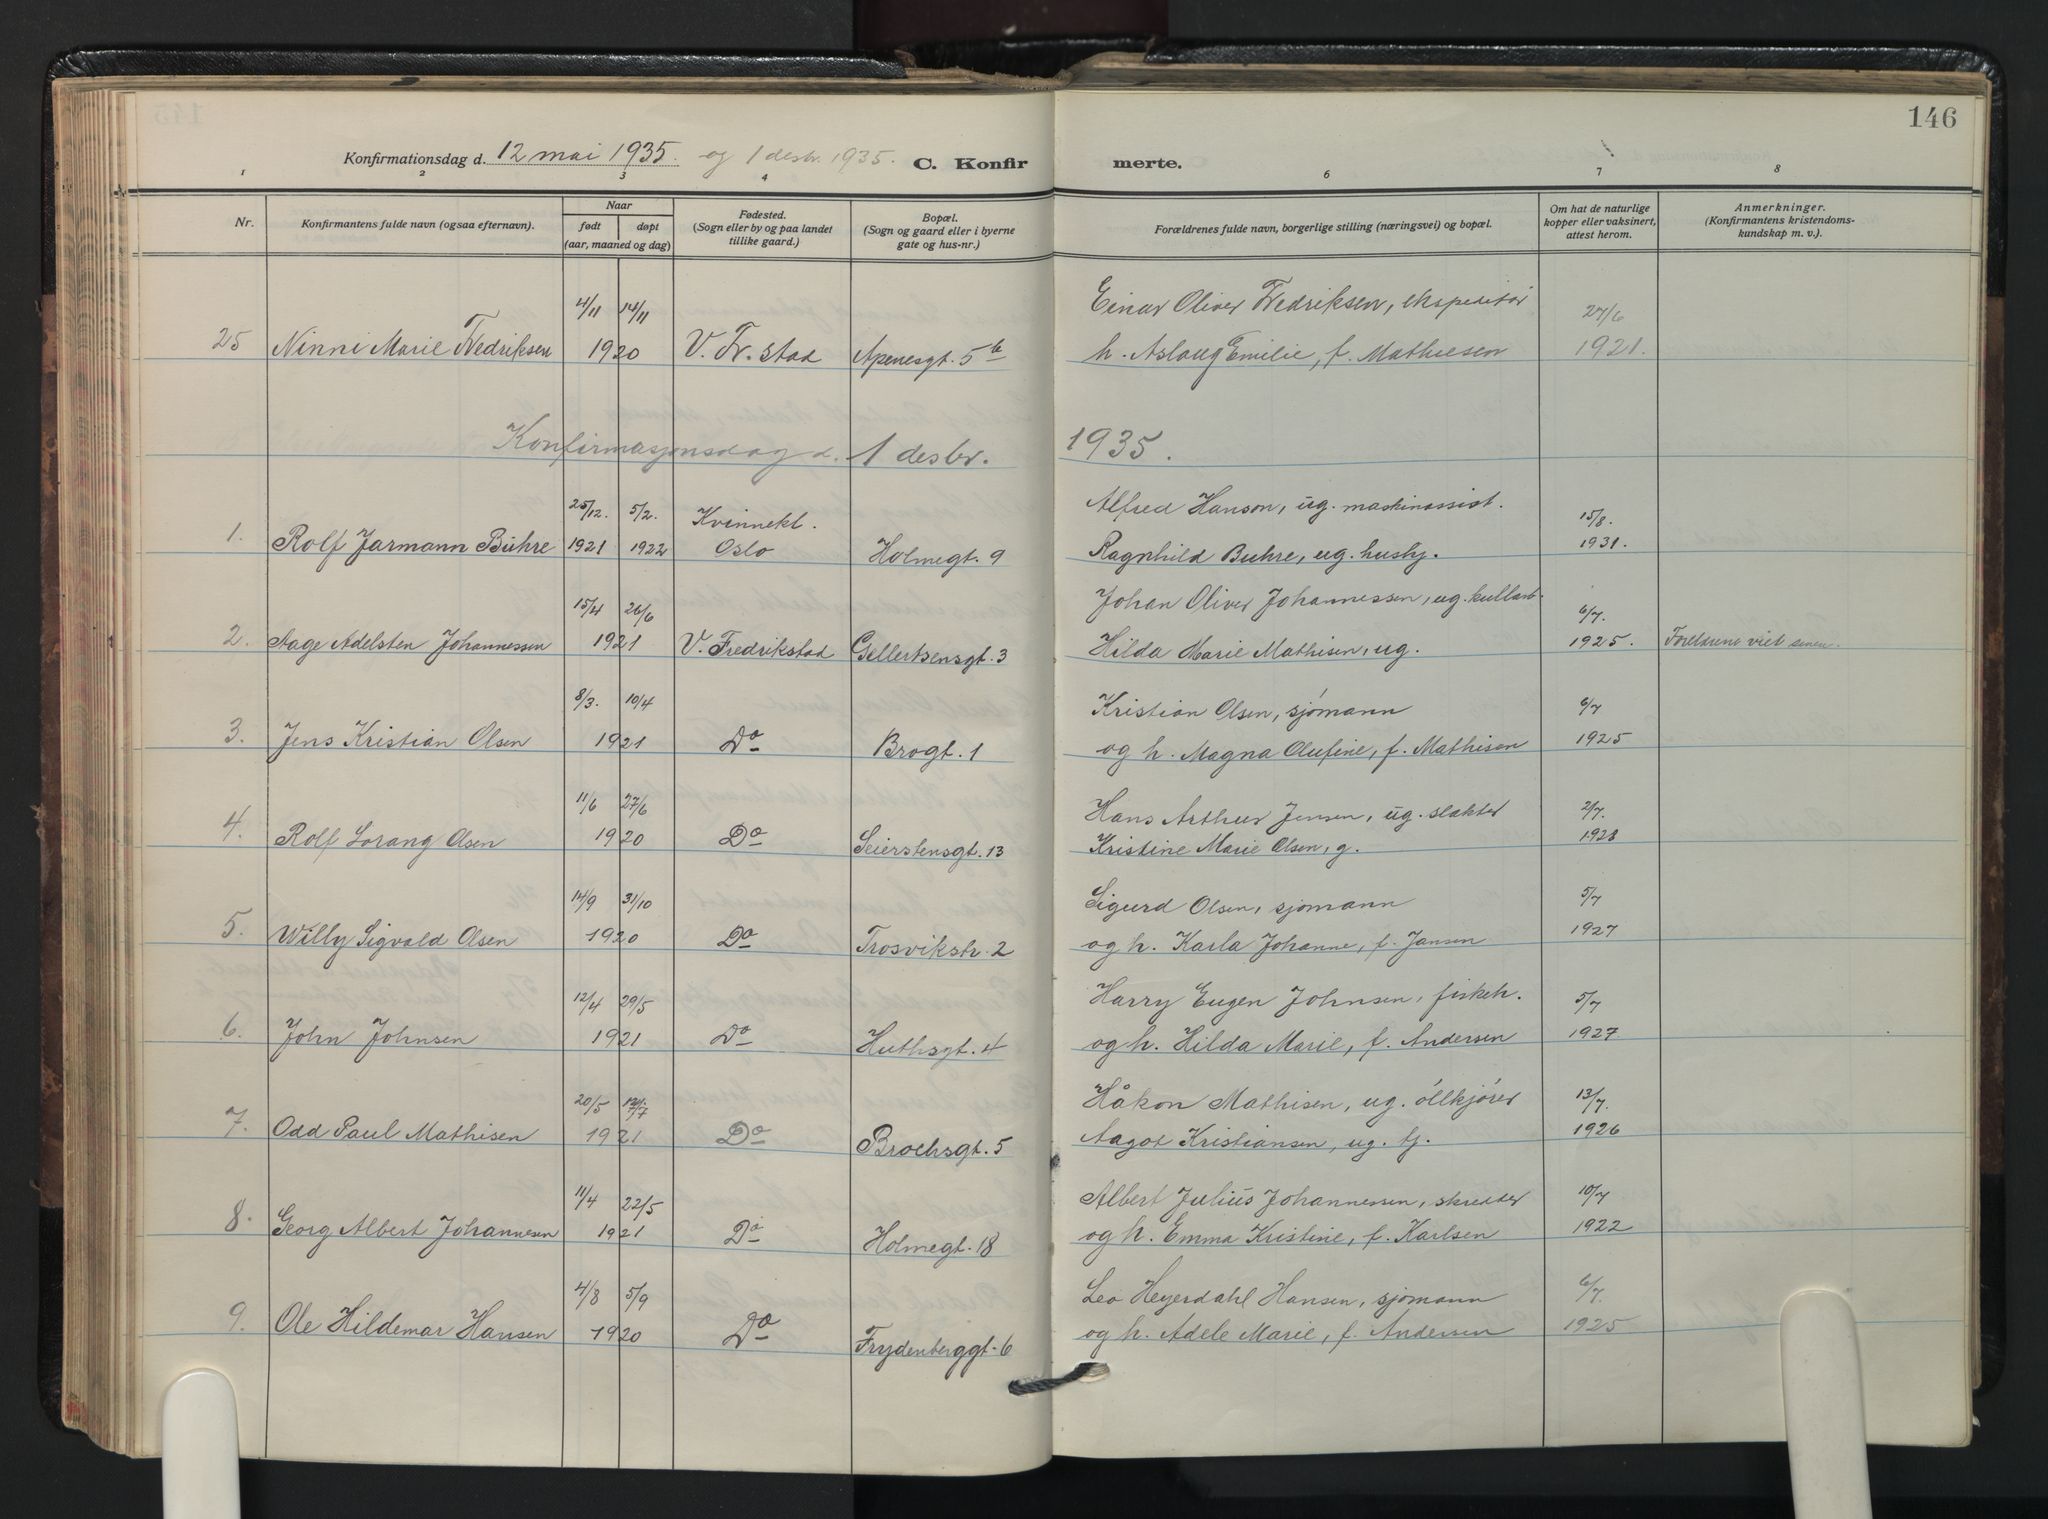 146
Konfirmationsdag d. 12 mai 1935. og 1 desbr. 1935. C. Konfirmerte.
1 2 3 4 6 7 8
Nr.
Konfirmantens fulde navn (ogsaa efternavn).
Naar
født døpt
(aar, maaned og dag)
Fødested.
(Sogn eller by og paa landet
tillike gaard.)
Bopæl.
(Sogn og gaard eller i byerne
gate og hus-nr.)
Forældrenes fulde navn, borgerlige stilling (næringsvei) og bopæl.
Om hat de naturlige
kopper eller vaksinert,
attest herom.
Anmerkninger.
(Konfirmantens kristendoms-
kundskap m. v.).
4/11 14/11 Einar Oliver Fredriksen, ekspeditør 27/6
25 Ninni Marie Fredriksen 1920 V. Fr.stad Apenesgt. 5b h. Aslaug Emilie, f. Mathiesen 1921.
Konfirmasjonsdag d. 1 desbr. 1935.
25/12. 5/2. Kvinnekl. Alfred Hanson, ug. maskinassist. 15/8.
1. Rolf Jarmann Buhre 1921 1922 Oslo Holmegt. 9 Ragnhild Buhre, ug. hushj. 1931.
15/4 26/6 Johan Oliver Johannessen, ug. kullarb. 6/7.
2. Aage Adelsten Johannessen 1921 V. Fredrikstad Gellertsensgt. 3 Hilda Marie Mathisen, ug. 1925. Foreldrene viet senere.
8/3. 10/4 Kristian Olsen, sjømann 6/7
3. Jens Kristian Olsen 1921 Do Brogt. 1 og h. Magna Olufine, f. Mathisen 1925
11/6 27/6 Hans Arthur Jensen, ug. slakter 2/7.
4. Rolf Lorang Olsen 1920 Do Seierstensgt. 13 Kristine Marie Olsen, g. 1928
14/9 31/10 Sigurd Olsen, sjømann 5/7
5. Willy Sigvald Olsen 1920 Do Trosvikstr. 2 og h. Karla Johanne, f. Jansen 1927
12/4 29/5 Harry Eugen Johnsen, fiskeh. 5/7
6. John Johnsen 1921 Do Huthsgt. 4 og h. Hilda Marie, f. Andersen 1927.
20/5 Håkon Mathisen, ug. ølkjører 13/7.
7. Odd Paul Mathisen 1921 Do Brochsgt. 5 Aagot Kristiansen, ug. tj. 1926
11/4 22/5 Albert Julius Johannessen, skredder 10/7
8. Georg Albert Johannesen 1921 Do Holmegt. 18 og h. Emma Kristine, f. Karlsen 1922
4/8 5/9 Leo Heyerdahl Hansen, sjømann 6/7.
9. Ole Hildemar Hansen 1920 Do Frydenberggt. 6 og h. Adele Marie, f. Andersen 1925